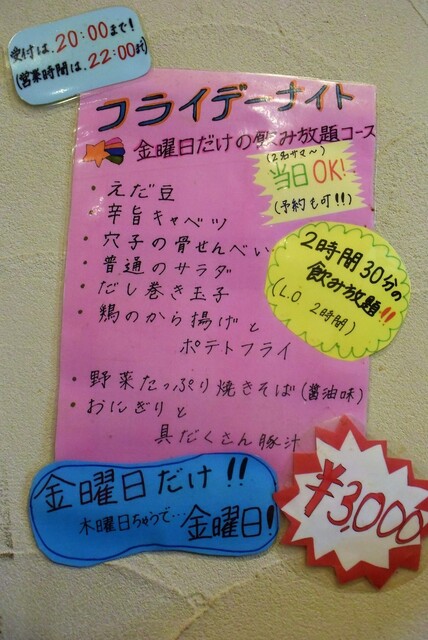 受付は、20:00まで!
(営業時間は、22:00まで)
フライデーナイト
金曜日だけの飲み放題コース
(2名サマ〜)
当日OK!
(予約も可!!)
・えだ豆
・辛旨キャベツ
・穴子の骨せんべい
・普通のサラダ
・だし巻き玉子
・鶏のから揚げと
ポテトフライ
2時間30分の
飲み放題!!
(L.O 2時間)
・野菜たっぷり焼きそば(醤油味)
・おにぎりと
具だくさん豚汁
金曜日だけ!!
木曜日ちゃうで…金曜日!
¥3,000